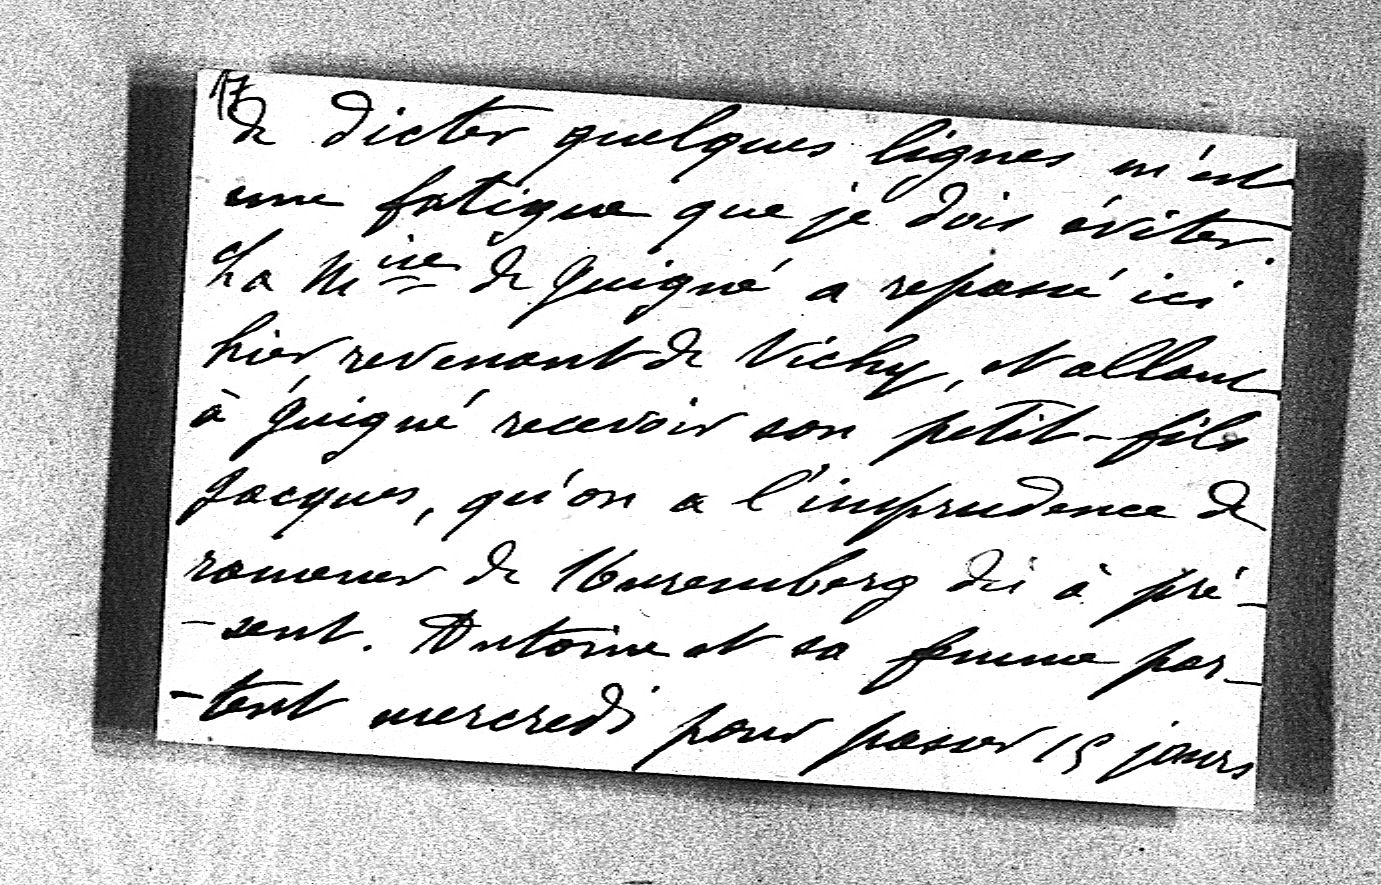 17
de dicter quelques lignes m'est
une fatigue que je dois éviter.
La Mise de Guigné a repassé ici
hier revenant de Vichy, et allant
à Guigné recevoir son petit-fils
Jacques, qu'on a l'imprudence de
ramener de Nuremberg dès à pré-
-sent. Antoine et sa femme par-
-tent mercredi pour passer 15 jours